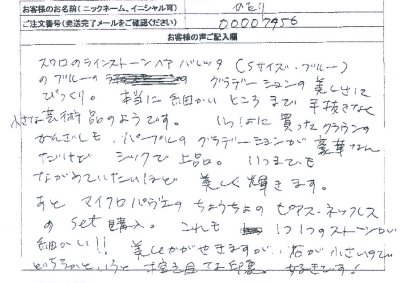 お客様のお名前(ニックネーム、イニシャル可)
ご注文番号(発送完了メールをご確認ください) 00007456
お客様の声ご記入欄
スワロのラインストーンヘアバレッタ(Sサイズ・ブルー)
のブルーの グラデーションの美しさに
びっくり。本当に細かいところまで手抜きなく
小さな芸術品のようです。いっしょに買ったクラウンの
かんざしも、パープルのグラデーションが豪華なん
だけどシックで上品。いつまでも
ながめていたいほど美しく輝きます。
あとマイクロパヴェのちょうちょのピアス・ネックレス
のset購入。これも 1つ1つのストーンが
細かい!! 美しくかがやきますが、石が小さいので
どちらかというと 印象。好きです!